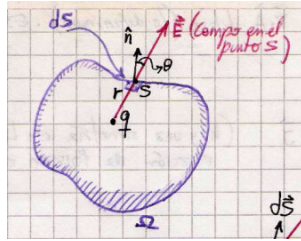 dS
n̂
E⃗ (campo en el
punto S)
θ
r
S
q
Ω
dS⃗